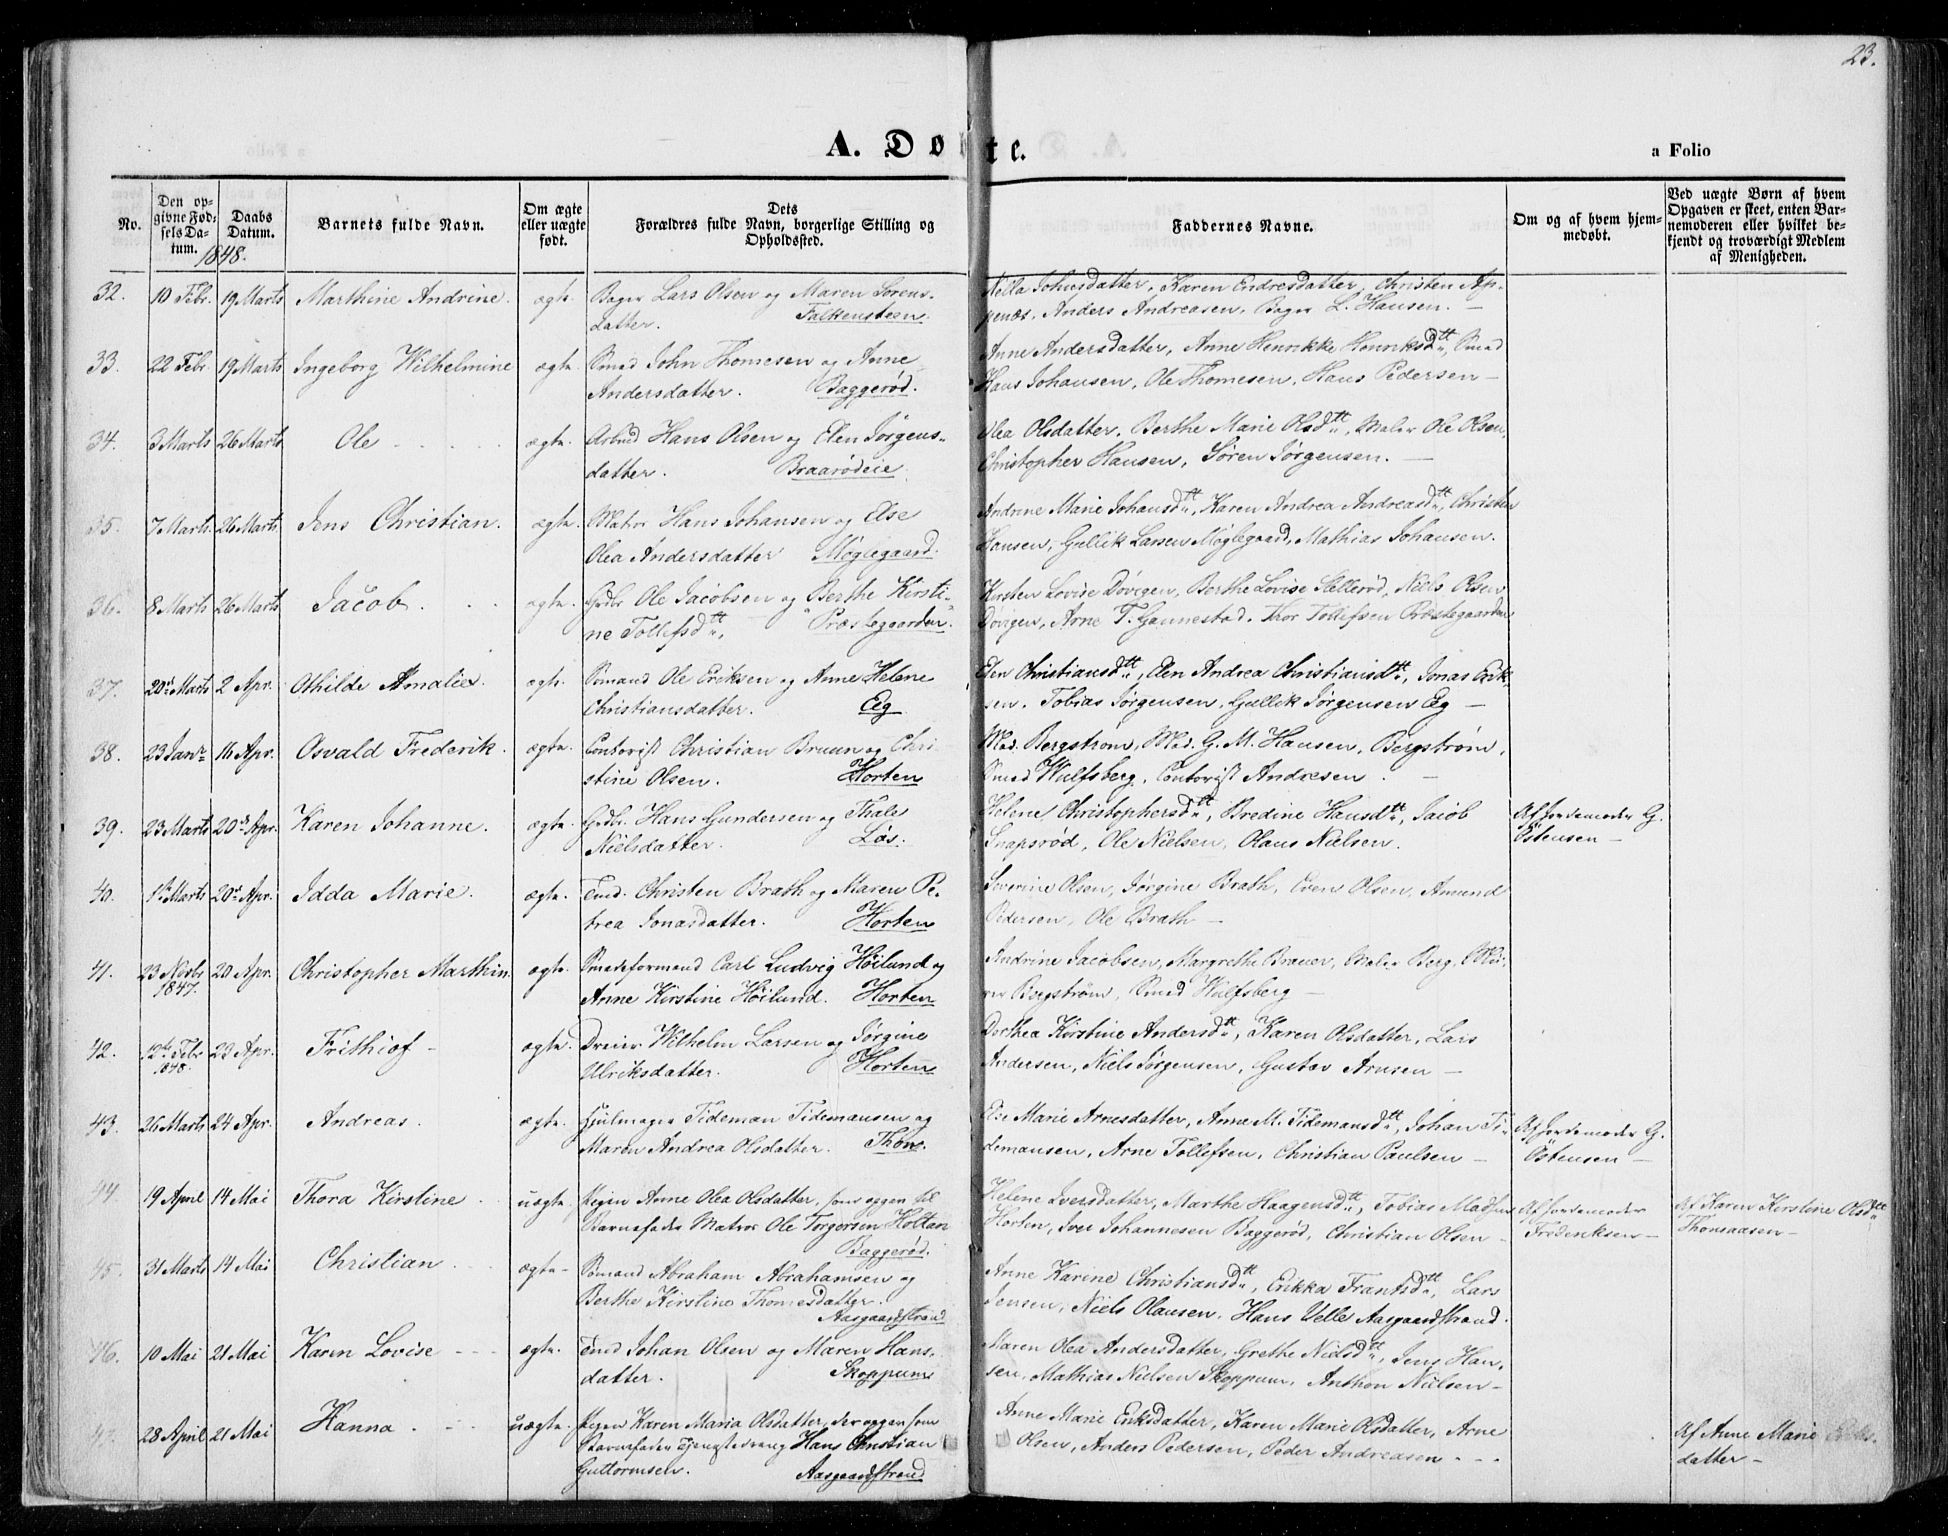 23.
A. Døbte.
a Folio
No. | Den opgivne Fødsels Datum. | Daabs Datum. | Barnets fulde Navn. | Om ægte eller uægte født. | Dets Forældres fulde Navn, borgerlige Stilling og Opholdssted. | Faddernes Navne. | Om og af hvem hjemmedøbt. | Ved uægte Børn af hvem Opgaven er skeet, enten Barnemoderen eller hvilket bekjendt og troværdigt Medlem af Menigheden.
1848.
32. 10 Febr. 19 Marts Marthine Andrine. ægte. Bager Lars Olsen og Maren Sørens- Karen Endresdatter, Christen Ap-
datter. Falkensteen. penæs, Anders Andreasen, Bager L. Hansen. —
33. 22 Febr. 19 Marts Ingeborg Wilhelmine ægte. Smed John Thomesen og Anne Anne Andersdatter, Anne Henrikke Henriksdtt, Smed
Andersdatter. Baggerød. Hans Johansen, Ole Thomesen, Hans Pedersen —
34. 3 Marts 26 Marts Ole ægte. Arbmd Hans Olsen og Elen Jørgens- Olea Olsdatter, Berthe Marie Olsdtt, Maler Ole Olsen,
datter. Braarødeie. Christopher Hansen, Søren Jørgensen. —
35. 7 Marts 26 Marts Jens Christian. ægte. Matros Hans Johansen og Else Andrine Marie Johansdtt, Karen Andrea Andreasdtt, Christen
Olea Andersdatter Møglegaard. Hansen, Gullik Larsen Møglegaard, Mathias Johansen.
36. 8 Marts 26 Marts Jacob. ægte. Grdbr Ole Jacobsen og Berthe Kirsti- Kirsten Lovise Døvigen, Berthe Lovise Sellerød, Niels Olsen
ne Tollefsdtt, Præstegaarden. Døvigen, Arne T. Gannestad, Thor Tollefsen Præstegaarden
37. 20de Marts 2 Apr. Othilde Amalie. ægte. Sømand Ole Eriksen og Anne Helene Elen Christiansdtt, Elen Andrea Christiansdtt, Jonas Erik-
Christiansdatter. Eeg sen, Tobias Jørgensen, Gullik Jørgensen Eeg —
38. 23 Janr 16 Apr. Osvald Frederik. ægte. Contorist Christian Bruun og Chri- Mad. Bergstrøm, Mad. G. M. Hansen, Bergstrøm,
stine Olsen. Horten Smed Wulfsberg, Contorist Andresen. —
39. 23 Marts 20de Apr. Karen Johanne. ægte. Grdbr. Hans Gundersen og Thale Helene Christophersdtt, Bredine Hansdtt, Jacob Af Jordemoder G.
Nielsdatter. Løs. Snapsrød, Ole Nielsen, Olaus Nielsen. Østensen —
40. 1ste Marts 20de Apr. Idda Marie. ægte. Tmd. Christen Brath og Maren Pe- Severine Olsen, Jørgine Brath, Even Olsen, Amund
trea Jonasdatter. Horten Pedersen, Ole Brath —
41. 23 Novbr 20 Apr. Christopher Marthin. ægte. Smedeformand Carl Ludvig Höilund og Andrine Jacobsen, Margrethe Brauer, Maler Berg, Mu-
1847. Anne Kirstine Höilund. Horten rer Bergstrøm, Smed Wulfsberg —
42. 12te Febr 23 Apr. Frithiof — ægte. Dreier Wilhelm Larsen og Jørgine Dorthea Kirstine Andersdtt, Karen Olsdatter, Lars
1848. Ulriksdatter. Horten Andersen, Niels Jørgensen, Gustav Arnsen —
43. 26 Marts 24 Apr. Andreas. ægte. Hjulmager Tideman Tidemansen og Else Marie Arnesdatter, Anne M. Tidemansdtt, Johan Ti- Af Jordemoder G.
Maren Andrea Olsdatter. Thon. demansen, Arne Tollefsen, Christian Paulsen — Østensen —
44 19 April 14 Mai Thora Kirstine uægte. Pigen Anne Olea Olsdatter, som opgen til Helene Iversdatter, Marthe Haagensdtt, Tobias Madsen Af Jordemoder Af Karen Kirstine Olsdtt
Barnefader Matros Ole Torgersen Holtan Horten, Iver Johannesen Baggerød, Christian Olsen — Frederiksen — Thonsaasen —
Baggerød.
45. 31 Marts 14 Mai Christian ægte — Sømand Abraham Abrahamsen og Anne Karine Christiansdtt, Erikka Frantsdtt, Lars
Berthe Kirstine Thomesdatter. Jensen, Niels Olausen, Hans Velle Aasgaardstrand.
Aasgaardstrand
46. 10 Mai 21 Mai Karen Lovise ægte. Tmd Johan Olsen og Maren Hans- Maren Olea Andersdatter, Grethe Nielsdtt, Jens Han-
datter. Skoppum sen, Mathias Nielsen Skoppum, Anthon Nielsen —
47. 28 April 21 Mai Hanna. uægte. Pigen Karen Maria Olsdatter, der opgen som Anne Marie Eriksdatter, Karen Marie Olsdatter, Arne Af Anne Marie Eriks-
Barnefader Tjenestedreng Hans Christian Olsen, Anders Pedersen, Peder Andreasen — datter —
Guttormsen. Aasgaardstrand